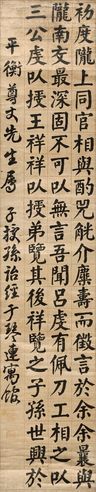 初度隴上同官相與酌兕觥介麋壽而徵言於余曩與
隴南交最深固不可以無言吾聞呂虔有佩刀工相之以
三公虔以授王祥祥以授弟覽其後祥覽之子孫世興於
平衡尊丈先生屬 子授孫詒經于琴連寓館